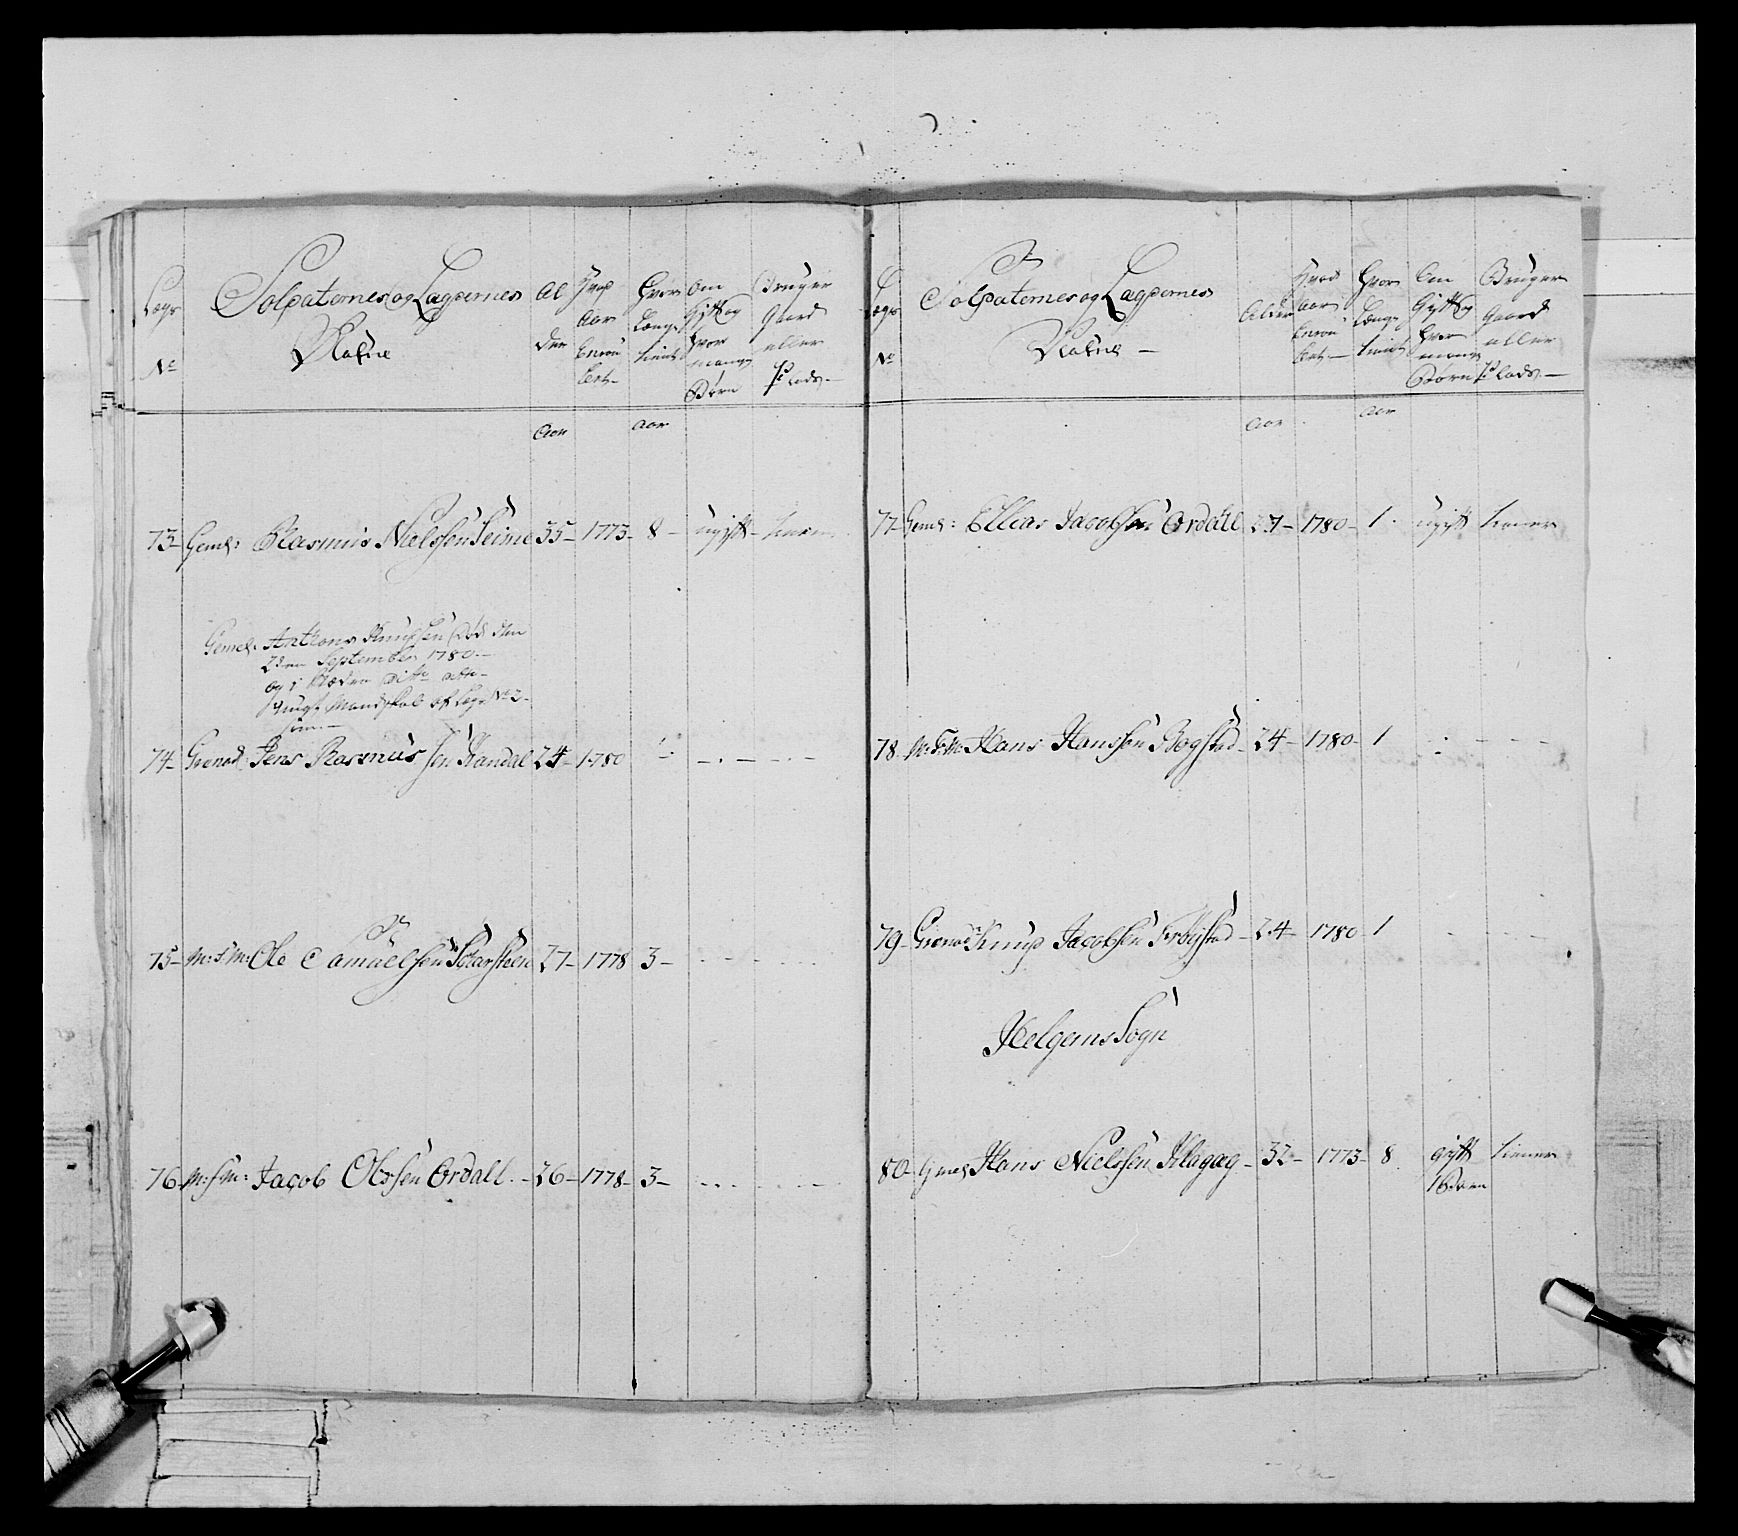 Lægs
No
Soldaternes og Lægdernes
Nafne
Al
der
Hvad
Aar
Enrou
lert
Hvor
Længe
tient
Om
Gift og
hvor
mange
Børn
Bruger
Gaard
eller
Plads
Aar
Aar
73 Geml: Rasmus Nielssen Seime 35 1773 8 ugift tiener
Geml: Anthone Knudssen død den
2den September 1780
og i Stæden Ditto
ungt Mandskab af Læg No 2
74 Grenad Jens Rasmussen Handal 24 1780 1
75 M:S:M: Ole Samuelsen 27 1778 3
76 M:S:M: Jacob Olssen Ordall 26 1778 3
Lægs
No
Soldaternes og Lægdernes
Nafne
Alder
Hvad
Aar
Enrou
lert
Hvor
Længe
tient
Om
Gift og
hvor
mange
Børn
Bruger
Gaard
eller
Plads
Aar
Aar
77 Geml: Ellias Jacobsen Ordall 27 1780 1 ugift tiener
78 M:S:M Hans Hanssen Bogstad 24 1780 1
79 Grenad Knud Jacobsen Frøystad 24 1780 1
Helgems Sogn
80 Geml Hans Nielssen Klagæg 32 1773 8 gift tiener
1 Barn